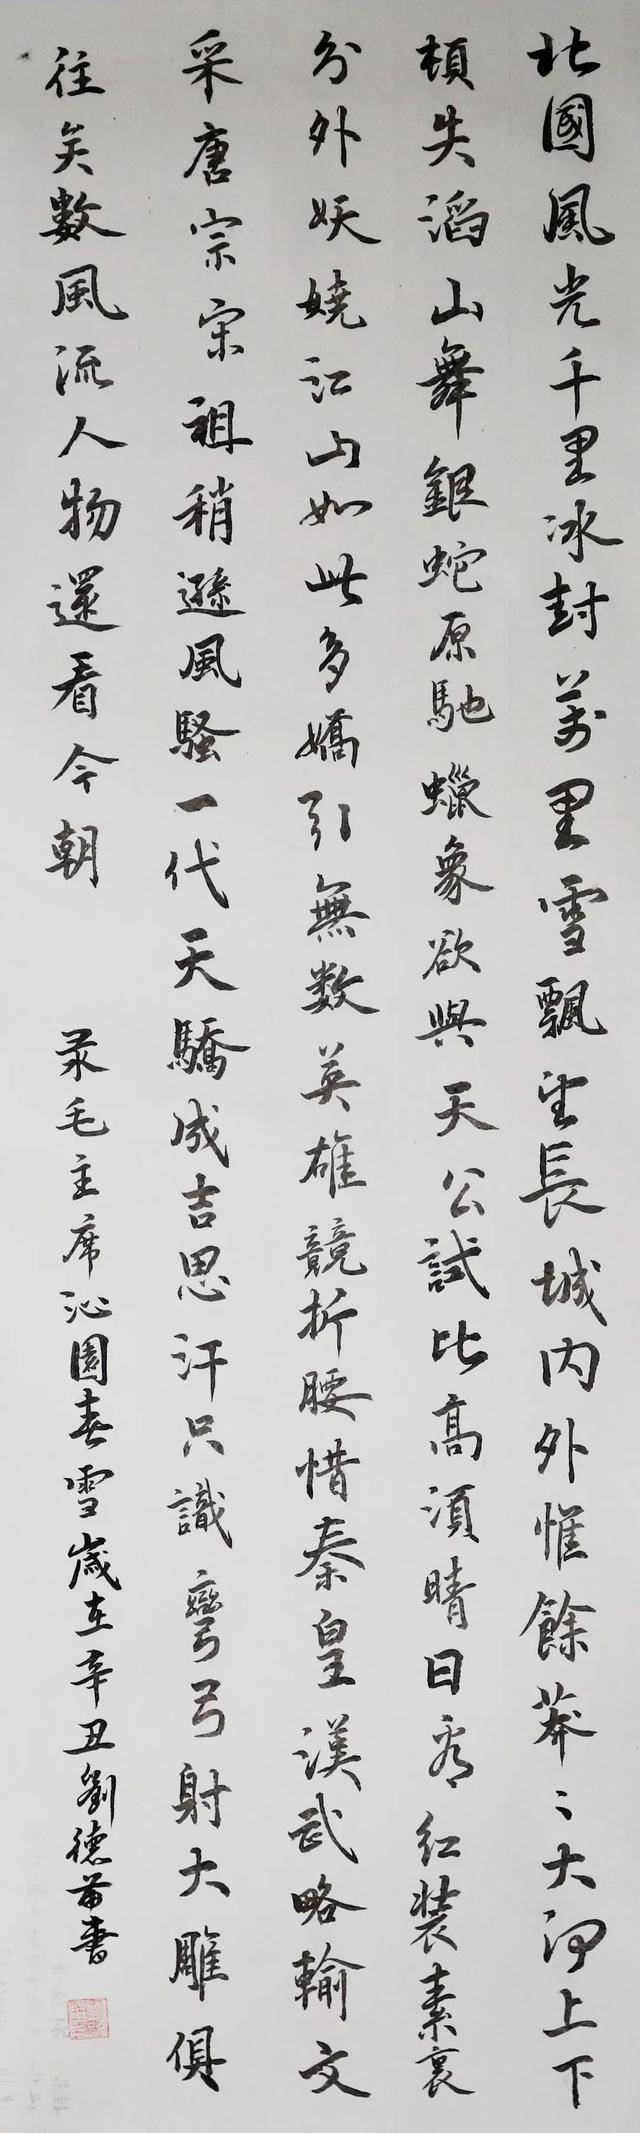 北國風光千里冰封萬里雪飄望長城內外惟餘莽〻大河上下
頓失滔山舞銀蛇原馳蠟象欲與天公試比高須晴日看紅裝素裹
分外妖嬈江山如此多嬌引無数英雄競折腰惜秦皇漢武略輸文
采唐宗宋祖稍遜風騷一代天驕成吉思汗只識彎弓射大雕俱
往矣數風流人物還看今朝
录毛主席沁園春雪歲在辛丑劉德苗書